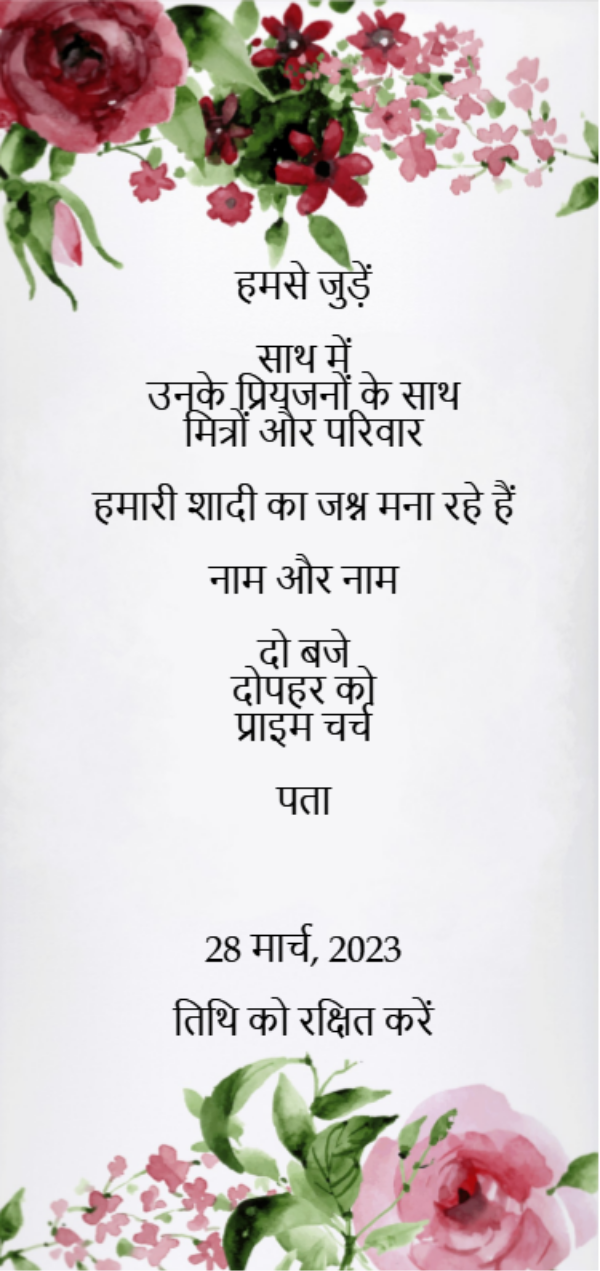 हमसे जुड़ें
साथ में
उनके प्रियजनों के साथ
मित्रों और परिवार
हमारी शादी का जश्न मना रहे हैं
नाम और नाम
दो बजे
दोपहर को
प्राइम चर्च
पता
28 मार्च, 2023
तिथि को रक्षित करें